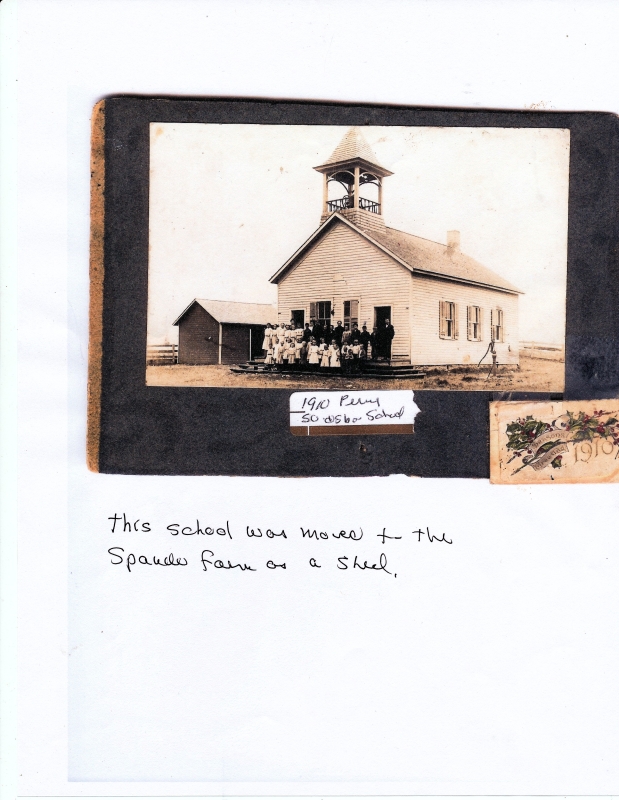 1910 Perry
School
1910
this school was moved to the
farm as a shed.